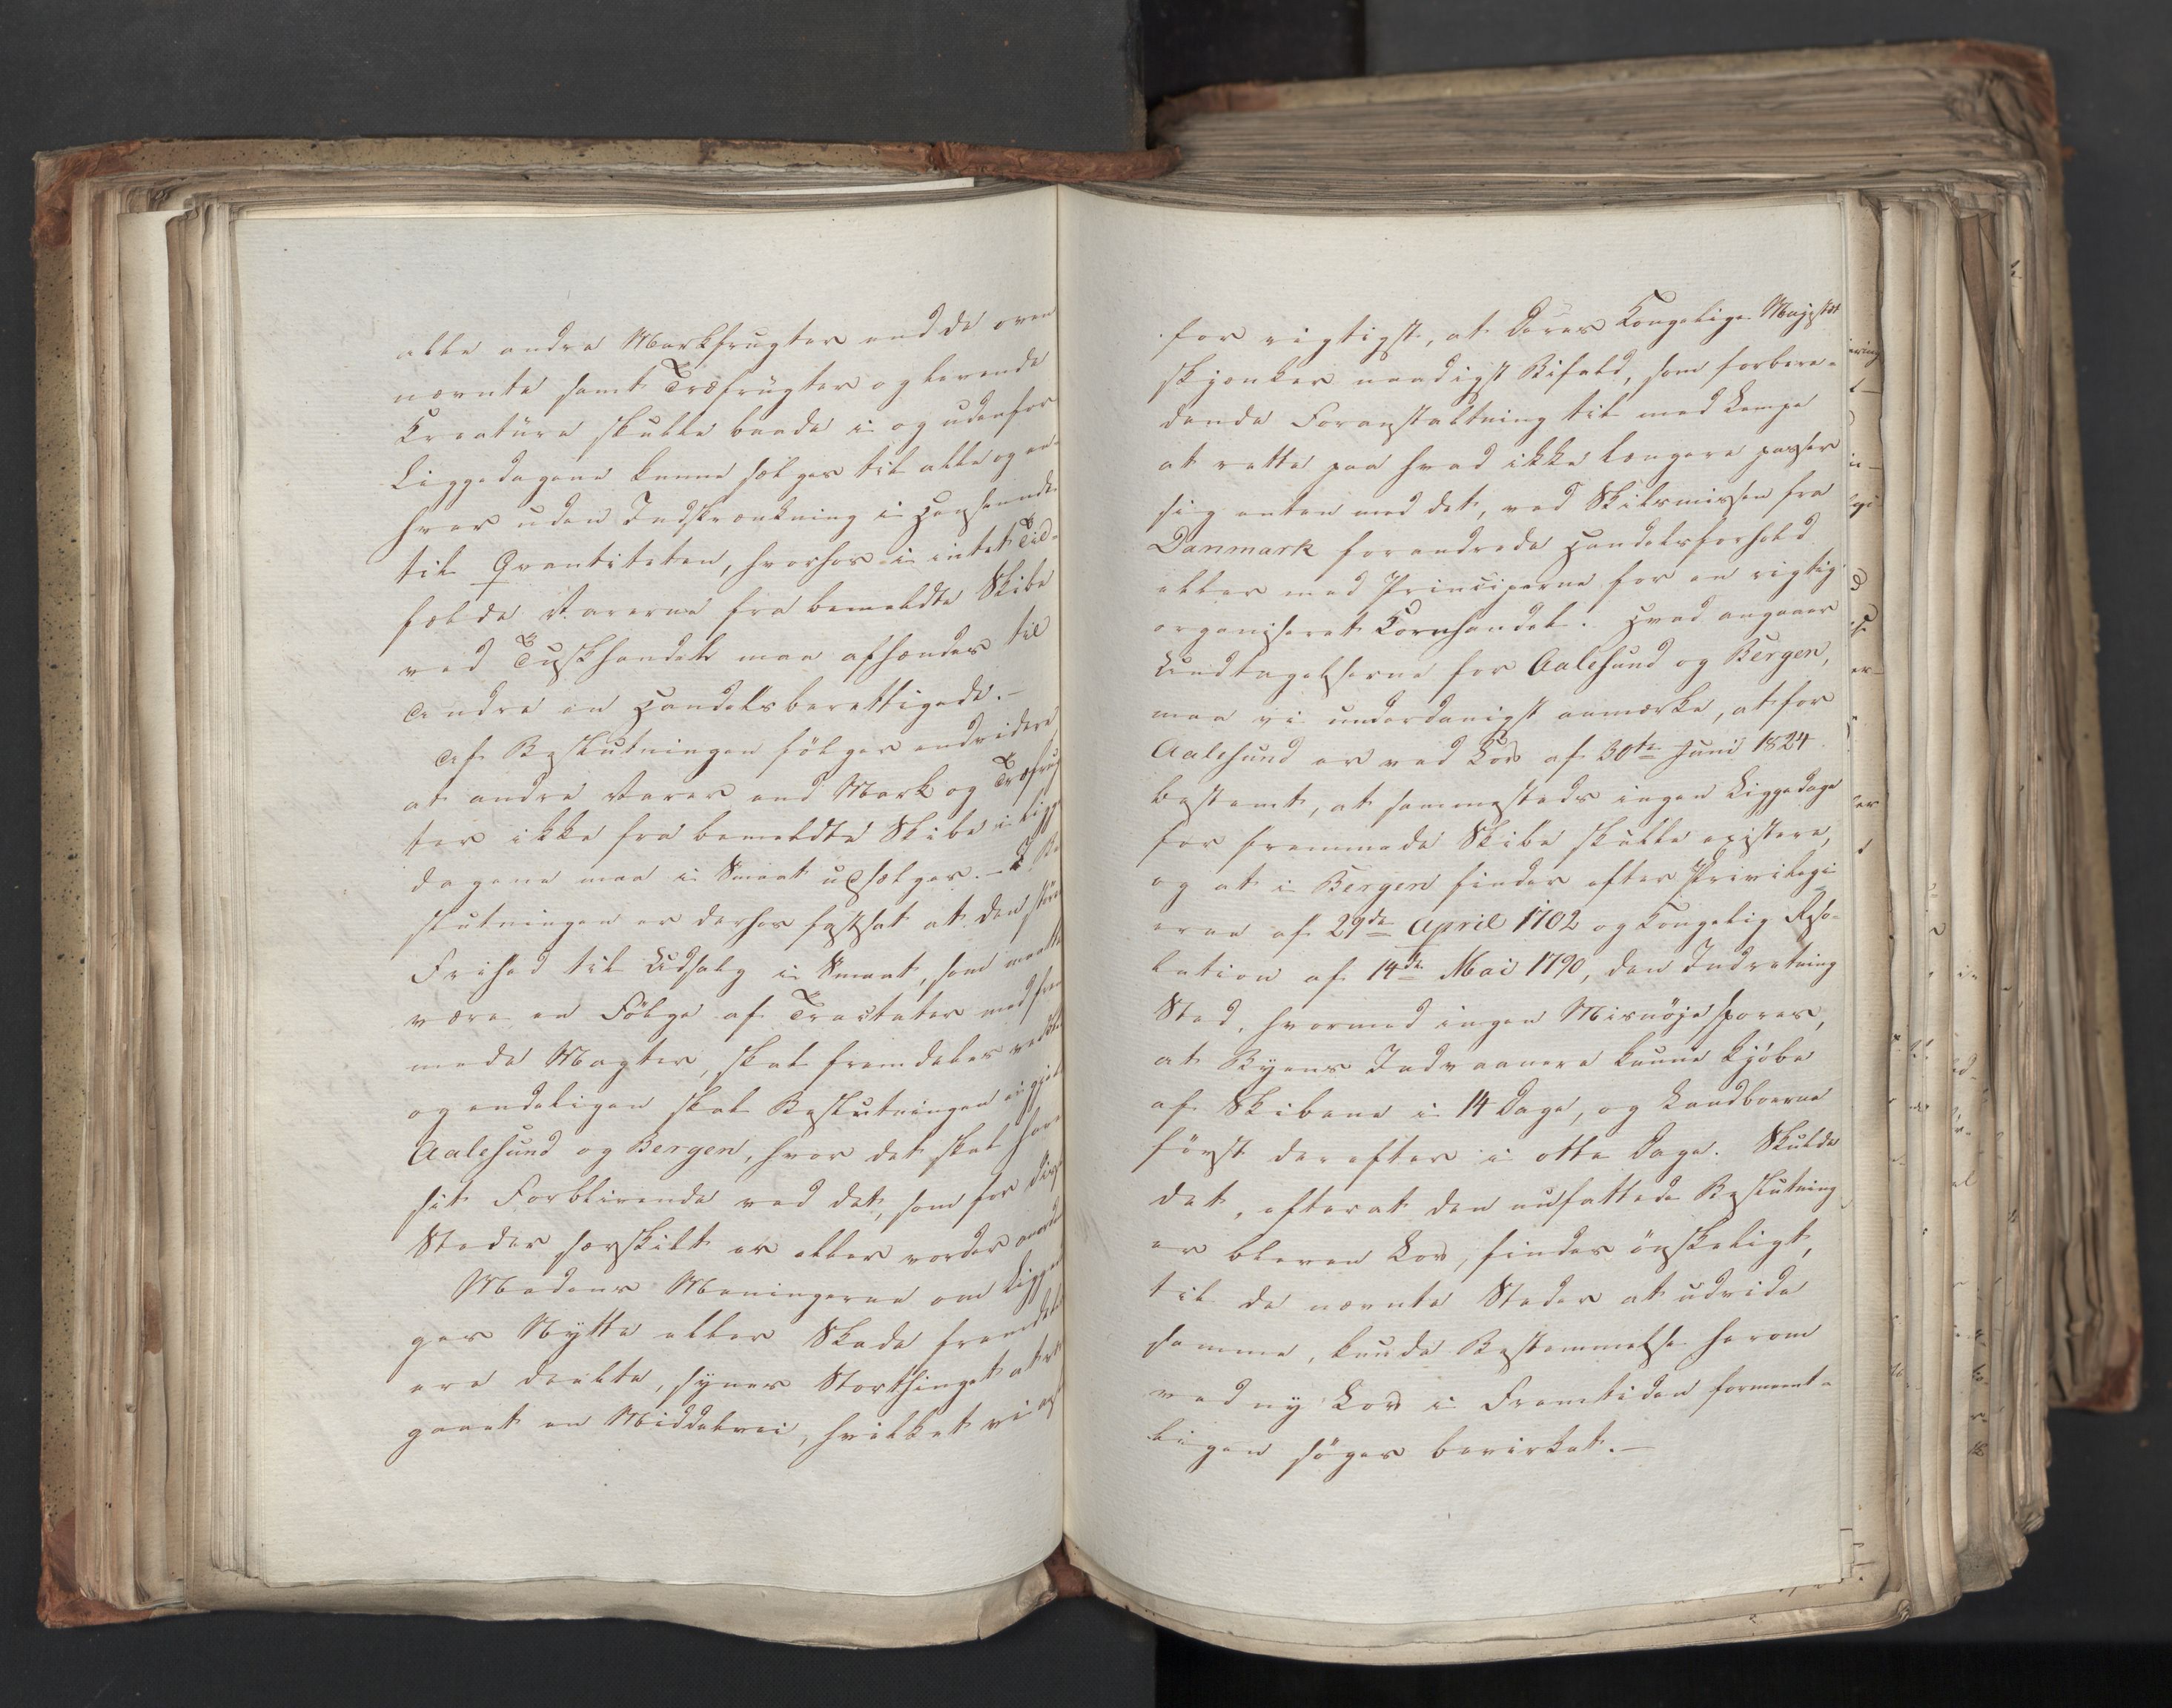 alle andre Markfrugter end de oven
nævnte samt Træfrugter og levende
Kreature skulle baade i og udenfor
Liggedagene kunne sælges til alle og en-
hver uden Indskrænkning i Henseende
til Qvantiteten, hvorhos i intet Til-
fælde Varerne fra bemeldte Skibe
ved Tuskhandel maa afhændes til
Andre en Handelsberettigede.-
Af Beslutningen fölger endvidere
at andre Varer end Mark og Træfrug
ter ikke fra bemeldte Skibe i Ligge
dagene maa i Smaat udsælges.- I Be
slutningen er derhos fastsat at den större
Frihed til Udsalg i Smaat, som maatte
være en Fölge af Tractater med frem
mede Magter, skal fremdeles vedblive
og endeligen skal Beslutningen ei gjelde
Aalesund og Bergen, hvor det skal have
sit Forblivende ved det, som for disse
Steder særskilt er eller vorder anordnet
Medens Meningerne om Liggeda
ges Nytte eller Skade fremdeles
ere deelte, synes Storthinget at være
gaaet en Middelvei, hvilket vi anse
for rigtigst, at Deres Kongelige Majestæt
skjenker naadigst Bifald, som forbere-
dende Foranstaltning til med Lempe
at rette paa hvad ikke længere passer
sig enten med det, ved Skilsmissen fra
Danmark forandrede Handelsforhold
eller med Principerne for en rigtig
organiseret Kornhandel. Hvad angaaer
Undtagelserne for Aalesund og Bergen,
maa vi underdanigst anmærke, at for
Aalesund er ved Lov af 30te Juni 1824
bestemt, at sammesteds ingen Liggedage
for fremmede Skibe skulle existere,
og at i Bergen finder efter Privilegi
erne af 29de April 1702 og kongelig Reso-
lution af 14de Mai 1790, den Indretning
Sted, hvormed ingen Misnöje spores,
at Byens Indvaanere kunne kjöbe
af Skibene i 14 Dage, og Landboerne
först derefter i otte Dage. Skulde
det, efterat den nu fattede Beslutning
er bleven Lov, findes önskeligt,
til de nævnte Steder at udvide
samme, kunde Bestemmelse herom
ved ny Lov i Fremtiden forment-
ligen söges bevirket.-